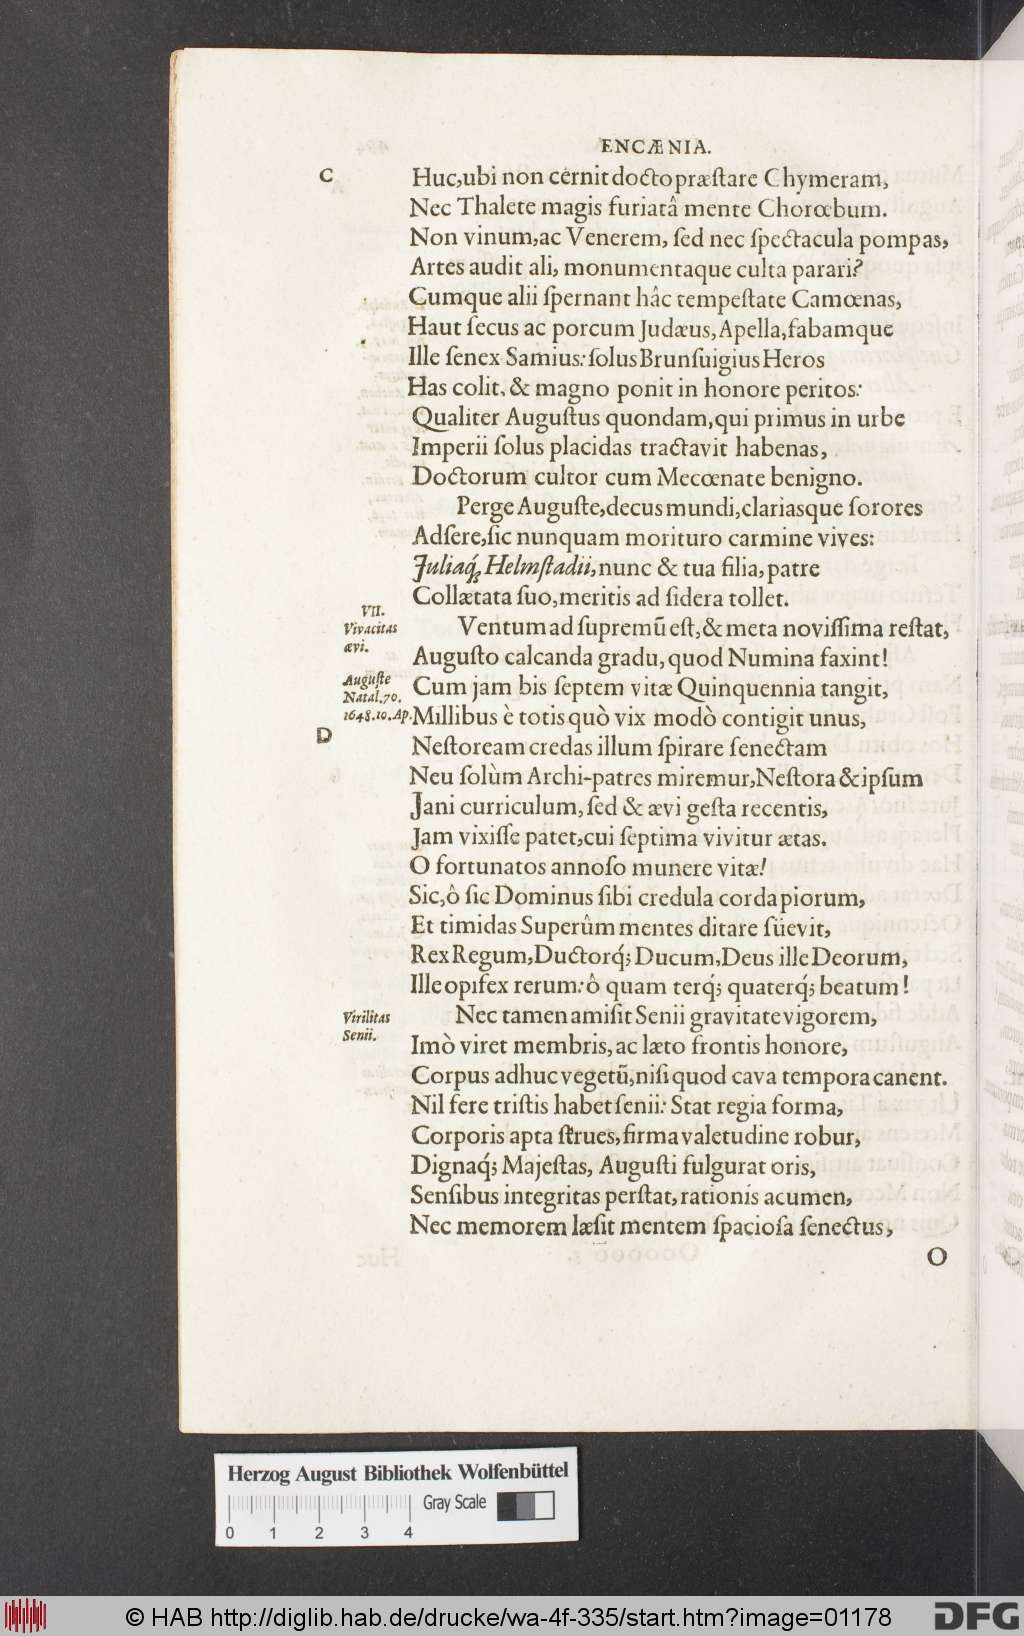 ENCÆNIA.
C
Huc,ubi non cernit docto præſtare Chymeram,
Nec Thalete magis furiatâ mente Chorœbum.
Non vinum,ac Venerem, ſed nec ſpectacula pompas,
Artes audit ali, monumentaque culta parari?
Cumque alii ſpernant hâc tempeſtate Camœnas,
Haut ſecus ac porcum Judæus, Apella,fabamque
Ille ſenex Samius: ſolus Brunſuigius Heros
Has colit, & magno ponit in honore peritos:
Qualiter Auguſtus quondam,qui primus in urbe
Imperii ſolus placidas tractavit habenas,
Doctorum cultor cum Mecœnate benigno.
Perge Auguſte,decus mundi,clariasque ſorores
Adſere,ſic nunquam morituro carmine vives:
Juliaq́; Helmſtadii,nunc & tua filia, patre
Collætata ſuo,meritis ad ſidera tollet.
VII.
Vivacitas
ævi.
Ventum ad ſupremũ eſt,& meta noviſſima reſtat,
Auguſto calcanda gradu, quod Numina faxint!
Auguſte
Natal.70.
1648.10.Ap.
Cum jam bis ſeptem vitæ Quinquennia tangit,
Millibus è totis quò vix modò contigit unus,
D
Neſtoream credas illum ſpirare ſenectam
Neu ſolùm Archi-patres miremur,Neſtora & ipſum
Jani curriculum, ſed & ævi geſta recentis,
Jam vixiſſe patet,cui ſeptima vivitur ætas.
O fortunatos annoſo munere vitæ!
Sic,ô ſic Dominus ſibi credula corda piorum,
Et timidas Superûm mentes ditare ſüevit,
Rex Regum,Ductorq́; Ducum,Deus ille Deorum,
Ille opifex rerum: ô quam terq́; quaterq́; beatum!
Virilitas
Senii.
Nec tamen amiſit Senii gravitate vigorem,
Imò viret membris, ac læto frontis honore,
Corpus adhuc vegetũ,niſi quod cava tempora canent.
Nil fere triſtis habet ſenii: Stat regia forma,
Corporis apta ſtrues,firma valetudine robur,
Dignaq́; Majeſtas, Auguſti fulgurat oris,
Senſibus integritas perſtat,rationis acumen,
Nec memorem læſit mentem ſpacioſa ſenectus,
O
Herzog August Bibliothek Wolfenbüttel
Gray Scale
0 1 2 3 4
© HAB http://diglib.hab.de/drucke/wa-4f-335/start.htm?image=01178
DFG